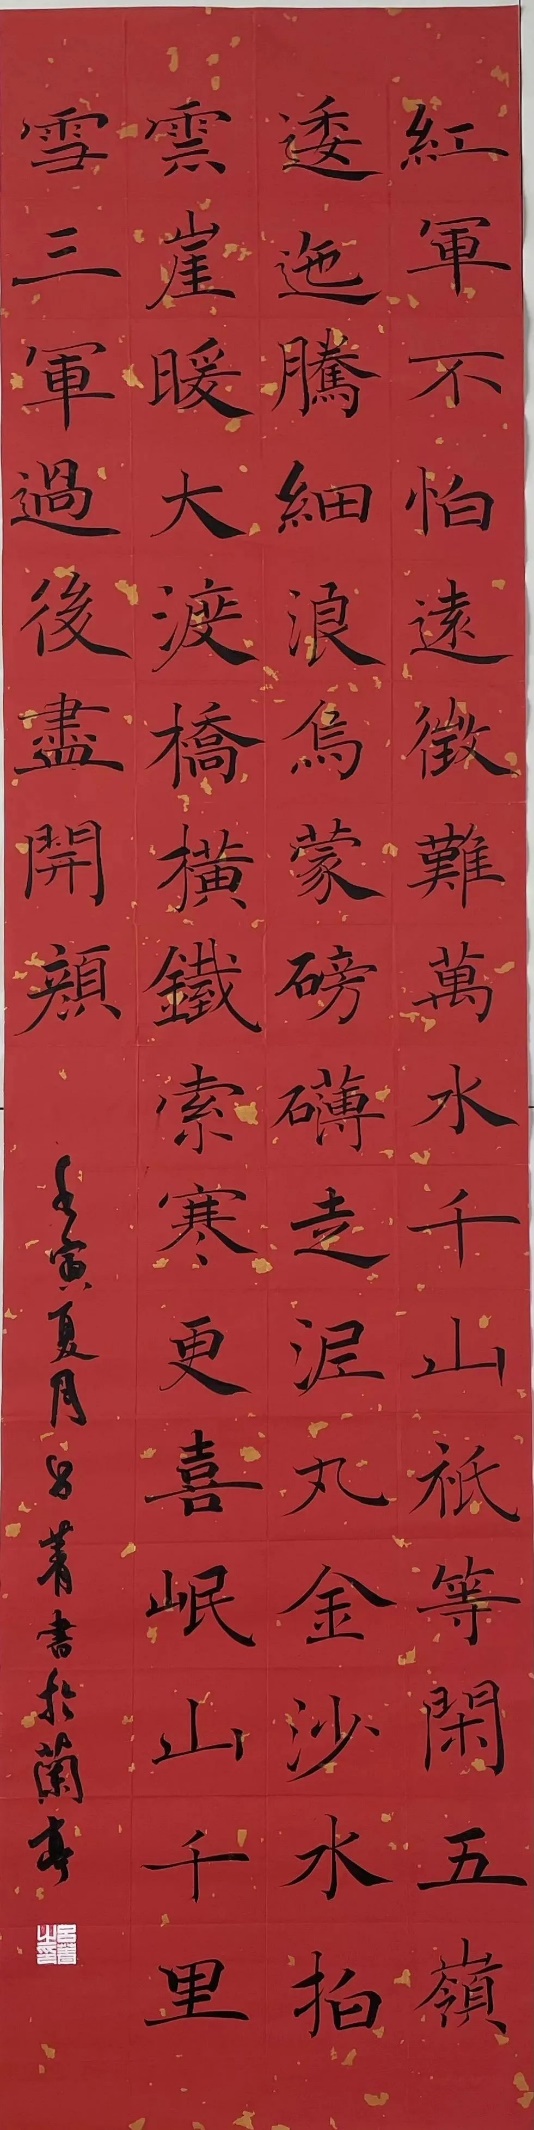 紅軍不怕遠徵難萬水千山祇等閑五嶺
逶迤騰細浪烏蒙磅礴走泥丸金沙水拍
雲崖暖大渡橋橫鐵索寒更喜岷山千里
雪三軍過後盡開顏
壬寅夏月呂菁書於蘭亭